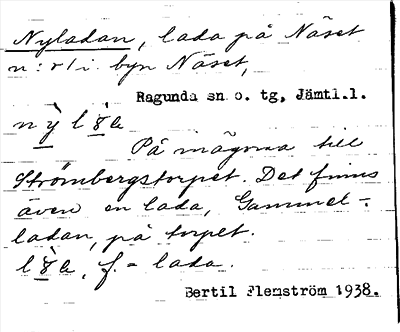 Nyladan, lada på Näset
n:r 1 i byn Näset,
Ragunda sn o. tg, Jämtl.l.
På mågorna till
Strömbergstorpet. Det finns
även en lada, Gammel-
ladan, på torpet.
f. = lada.
Bertil Flemström 1938.